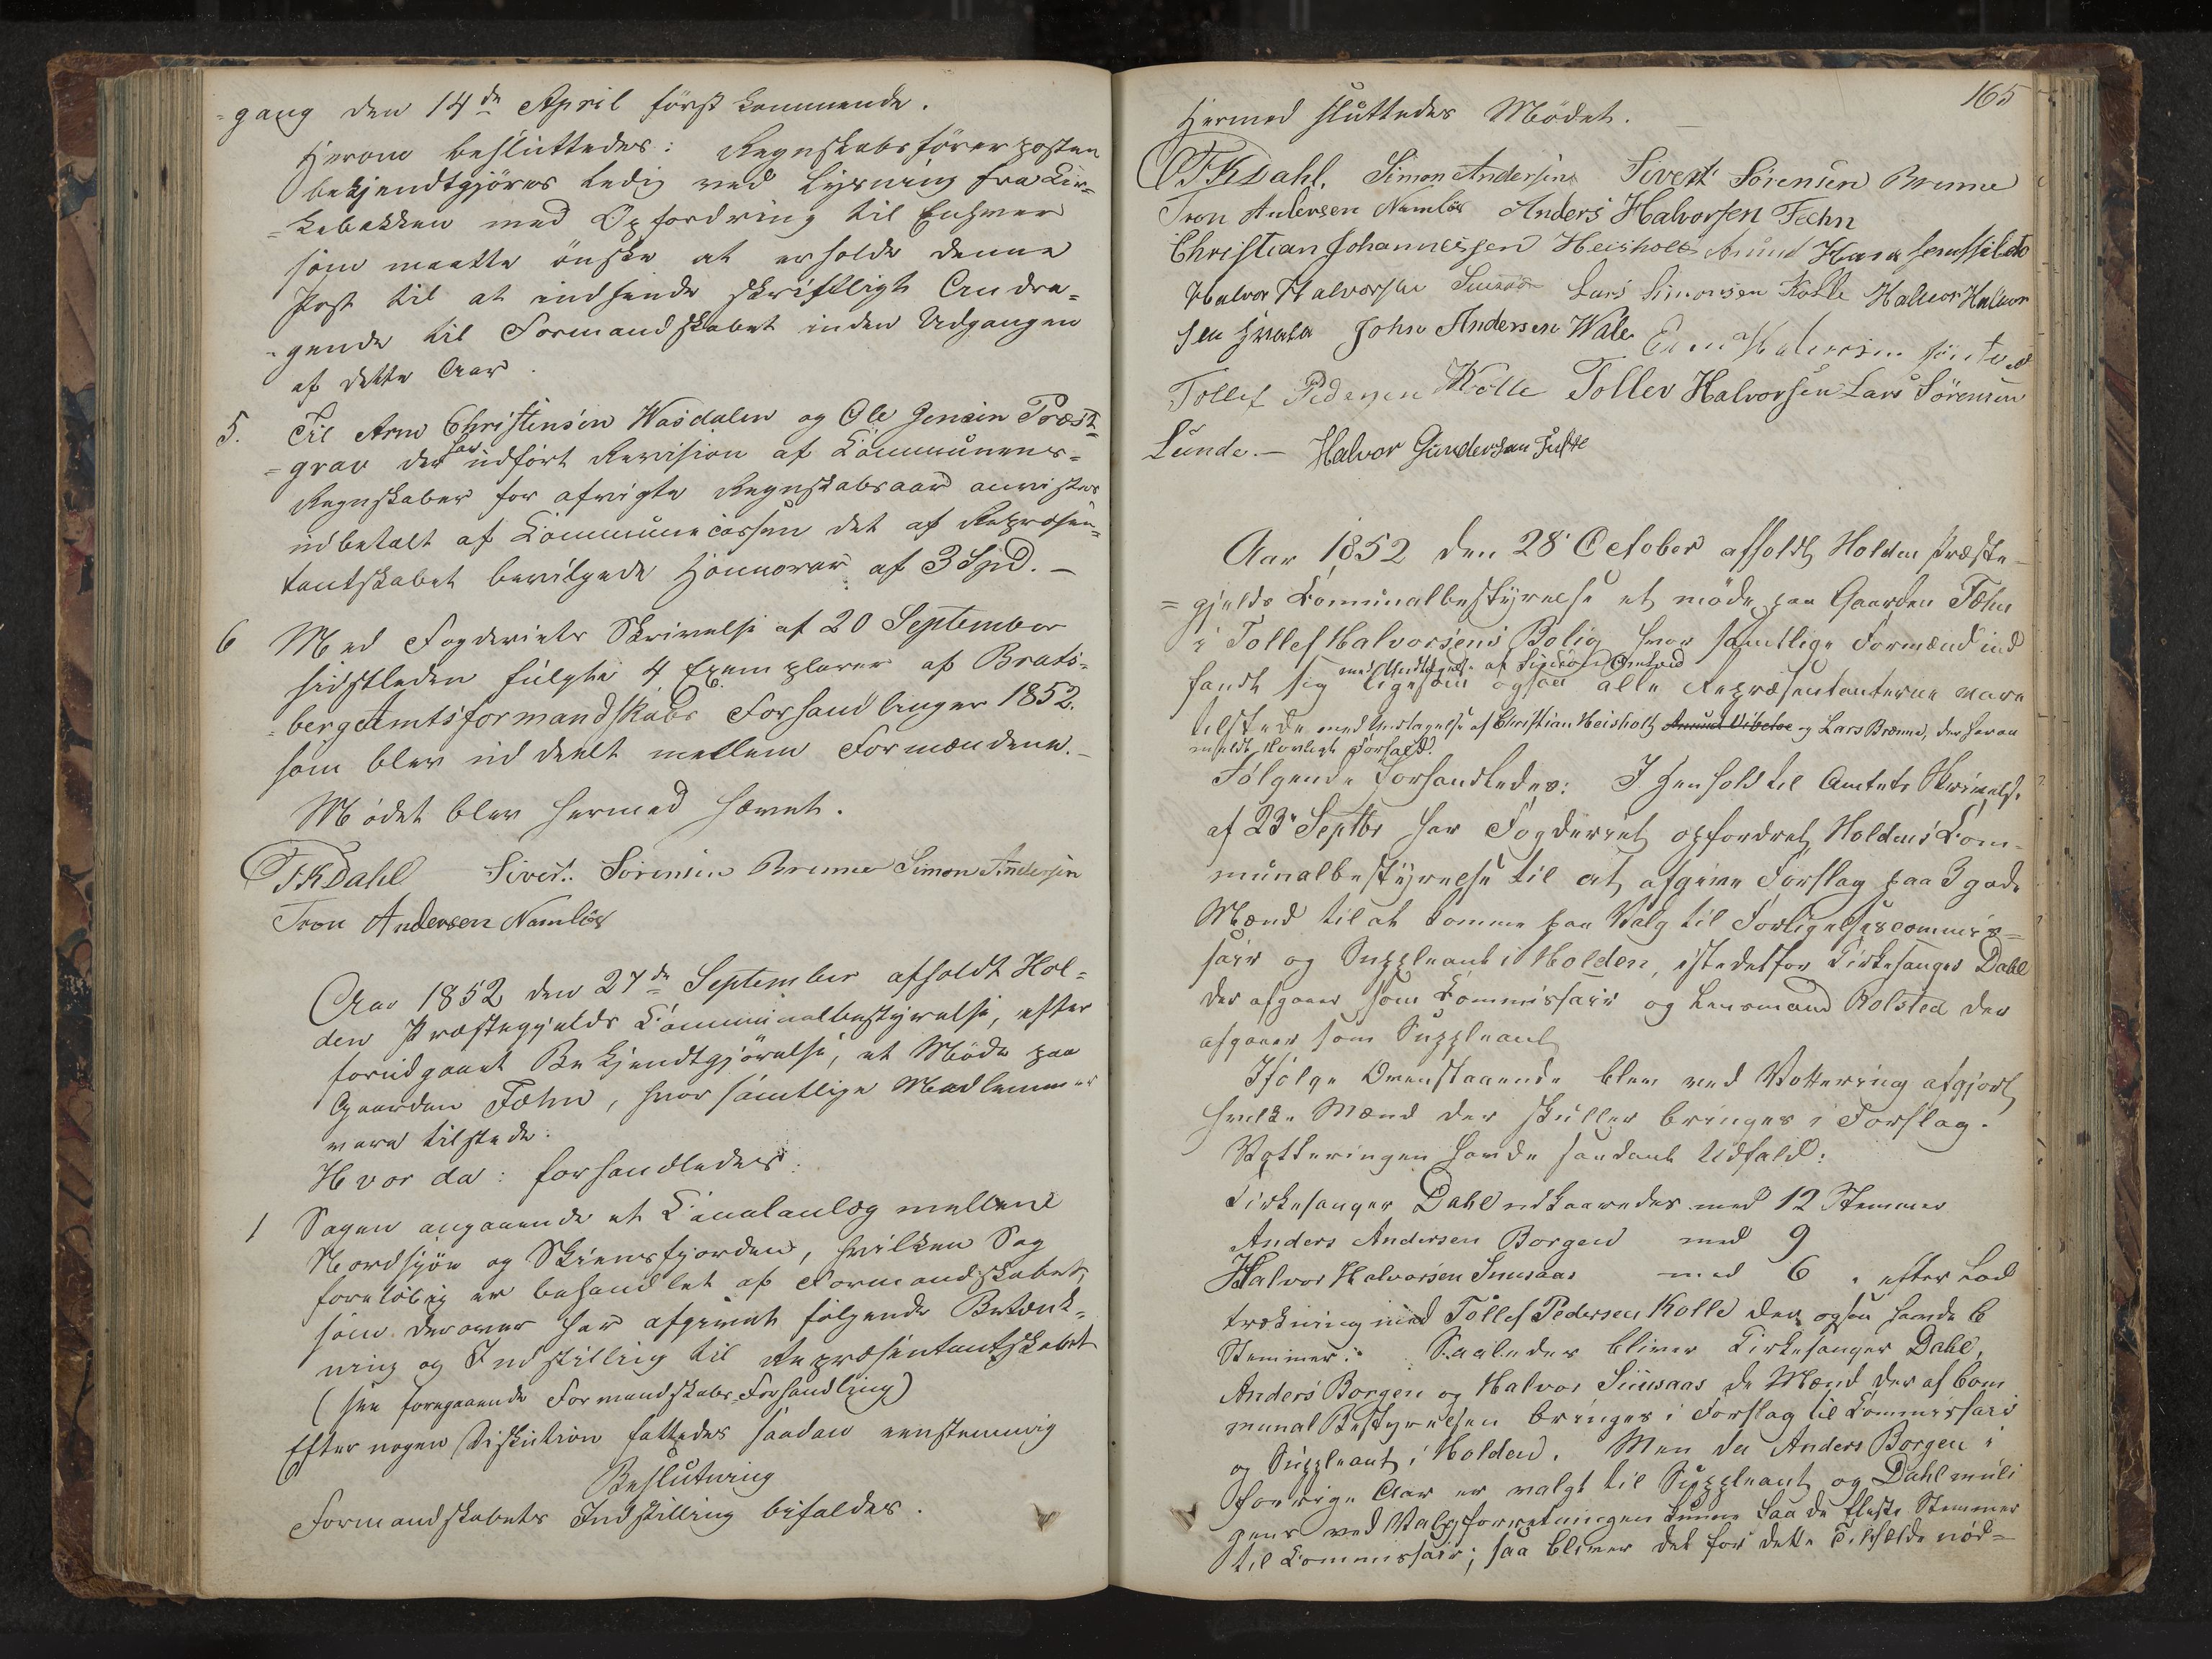 =gang den 14de April först kommende.
Herom besluttedes: Regnskabsförerposten
bekjendtgjöres ledig ved Lysning fra Kir-
=kebakken med Opfordring til Enhver
som maatte önske at erholde denne
Post til at indsende skriftligt Andra-
=gende til Formandskabet inden Udgangen
af dette Aar.
5. Til Arne Christensen Wasdalen og Ole Jensen Præst-
=grav der har udfört Revision af Kommunens=
Regnskaber for afvigte Regnskabsaar anvistes
udbetalt af Kommunecassen det af Repræsen-
tantskabet bevilgede Honnorar af 3 Spd. –
6 Med Fogderiets Skrivelse af 20 September
sidstleden fulgte 4 Exemplarer af Brats-
=bergAmtsformandskabs Forhandlinger 1852.
som blev uddeelt mellem Formændene. –
Mödet blev hermed hævet.
TKDahl Sivert Sörensen Brenne Simon Andersen
Tron Andersen Namlös
Aar 1852 den 27de September afholdt Hol-
den Præstegjelds Kommunalbestyrelse, efter
forudgaaet Bekjendtgjörelse, et Möde paa
Gaarden Fæhn, hvor samtlige Medlemmer
vare tilstede.
Hvor da: forhandledes:
1 Sagen angaaende et Canalanlæg mellem
Nordsjöe og Skiensfjorden, hvilken Sag
forelöbig er behandlet af Formandskabet,
som derover har afgivet fölgende Betænk-
ning og Indstilling til Repræsentantskabet
(see foregaaende Formandskabs Forhandling)
Efter nogen Diskution fattedes saadan eenstemmig
Beslutning
Formandskabets Indstilling bifaldes.
165
Hermed sluttedes Mödet. –
TKDahl. Simon Andersen Sivert Sörensen Brenne
Tron Andersen Namlös Anders Halvorsen Fæhn
Christian Johannessen Heisholt Amund
Halvor Halvorsen Lars Simonsen Kolle Halvor Halvor
sen John Andersen Wale
Tollef Pedersen Kolle Tollev Halvorsen Lars Sörensen
Lunde. – Halvor Gundersen
Aar 1852 den 28 October afholdt Holden Præste-
=gjelds Kommunalbestyrelse et möde paa Gaarden Fæhn
i Tollef Halvorsens Bolig hvor samtlige Formænd ind
fandt sig med Undtagelse af ligesom ogsaa alle Repræsentanterne vare
tilstede med Undtagelse af Christian Heisholt og Lars Brenne, der havde
anmeldt lovligt Forfald.
Fölgende forhandledes: I Henhold til Amtets Skrivelse
af 23de Septbr har Fogderiet opfordret Holdens Kom-
munalbestyrelse til at afgive Forslag paa 3 gode
Mænd til at komme paa Valg til Forligelsescommis=
sair og Suppleant i Holden, istedetfor Kirkesanger Dahl
der afgaaer som Kommissair og Lensmand Rolsted der
afgaaer som Suppleant
Ifölge Ovenstaaende blev ved Vottering afgjort
hvilke Mænd der skulle bringes i Forslag.
Votteringen havde saadant Udfald:
Kirkesanger Dahl udkaaredes med 12 Stemmer
Anders Andersen Borgen med 9
Halvor Halvorsen Snusaas med 6 „ efter Lod
trækning med Tollef Pedersen Kolle der ogsaa havde 6
Stemmer. Saaledes bliver Kirkesanger Dahl,
Anders Borgen og Halvor Snusaas de Mænd der af Com
munal Bestyrelsen bringes i Forslag til Kommissair
og Suppleant i Holden. Men da Anders Borgen i
forrige Aar er valgt til Suppleant og Dahl muli
gens ved Valgforretningen kunne faa de fleste Stemmer
til Kommissair; saa bliver det for dette Tilfælde nöd=